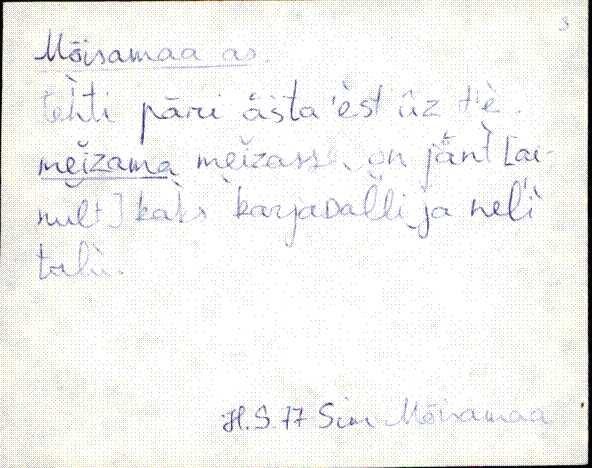 3
Mõisamaa as.
tehti pāri āsta 'est ūz tiè.
meizama meizass on jänt [ai-
nult] kaks karjaDalli ja neli
talu.
H.S. 77 Sim Mõisamaa